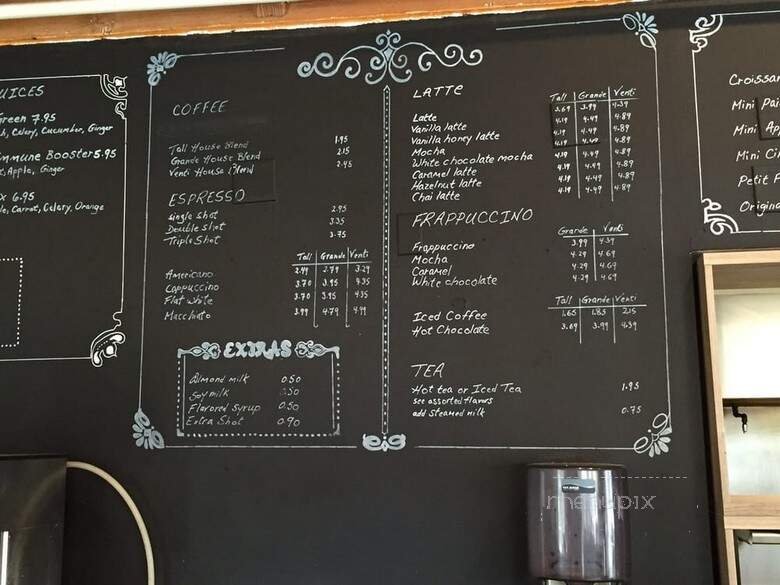 UICES
Green 7.95
h, Celery, Cucumber, Ginger
mmune Booster 5.95
t, Apple, Ginger
x 6.95
le, Carrot, Celery, Orange
COFFEE
Tall House Blend 1.95
Grande House Blend 2.15
Venti House Blend 2.45
ESPRESSO
Single Shot 2.95
Double Shot 3.35
Triple Shot 3.75
Tall Grande Venti
Americano 2.49 2.79 3.29
Cappuccino 3.70 3.95 4.35
Flat White 3.70 3.95 4.35
Macchiato 3.99 4.79 4.99
EXTRAS
Almond milk 0.50
Soy milk 0.50
Flavored Syrup 0.50
Extra Shot 0.90
LATTE
Tall Grande Venti
Latte 3.69 3.99 4.39
Vanilla latte 4.19 4.49 4.89
Vanilla honey latte 4.19 4.49 4.89
Mocha 4.19 4.49 4.89
White chocolate mocha 4.19 4.49 4.89
Caramel latte 4.19 4.49 4.89
Hazelnut latte 4.19 4.49 4.89
Chai latte 4.19 4.49 4.89
FRAPPUCCINO
Grande Venti
Frappuccino 3.99 4.39
Mocha 4.29 4.69
Caramel 4.29 4.69
White chocolate 4.29 4.69
Tall Grande Venti
Iced Coffee 1.65 1.85 2.15
Hot Chocolate 3.69 3.99 4.39
TEA
Hot tea or Iced Tea 1.95
see assorted flavors
add steamed milk 0.75
Croissan
Mini Pai
Mini Ap
Mini Ci
Petit P
Origina
menupix